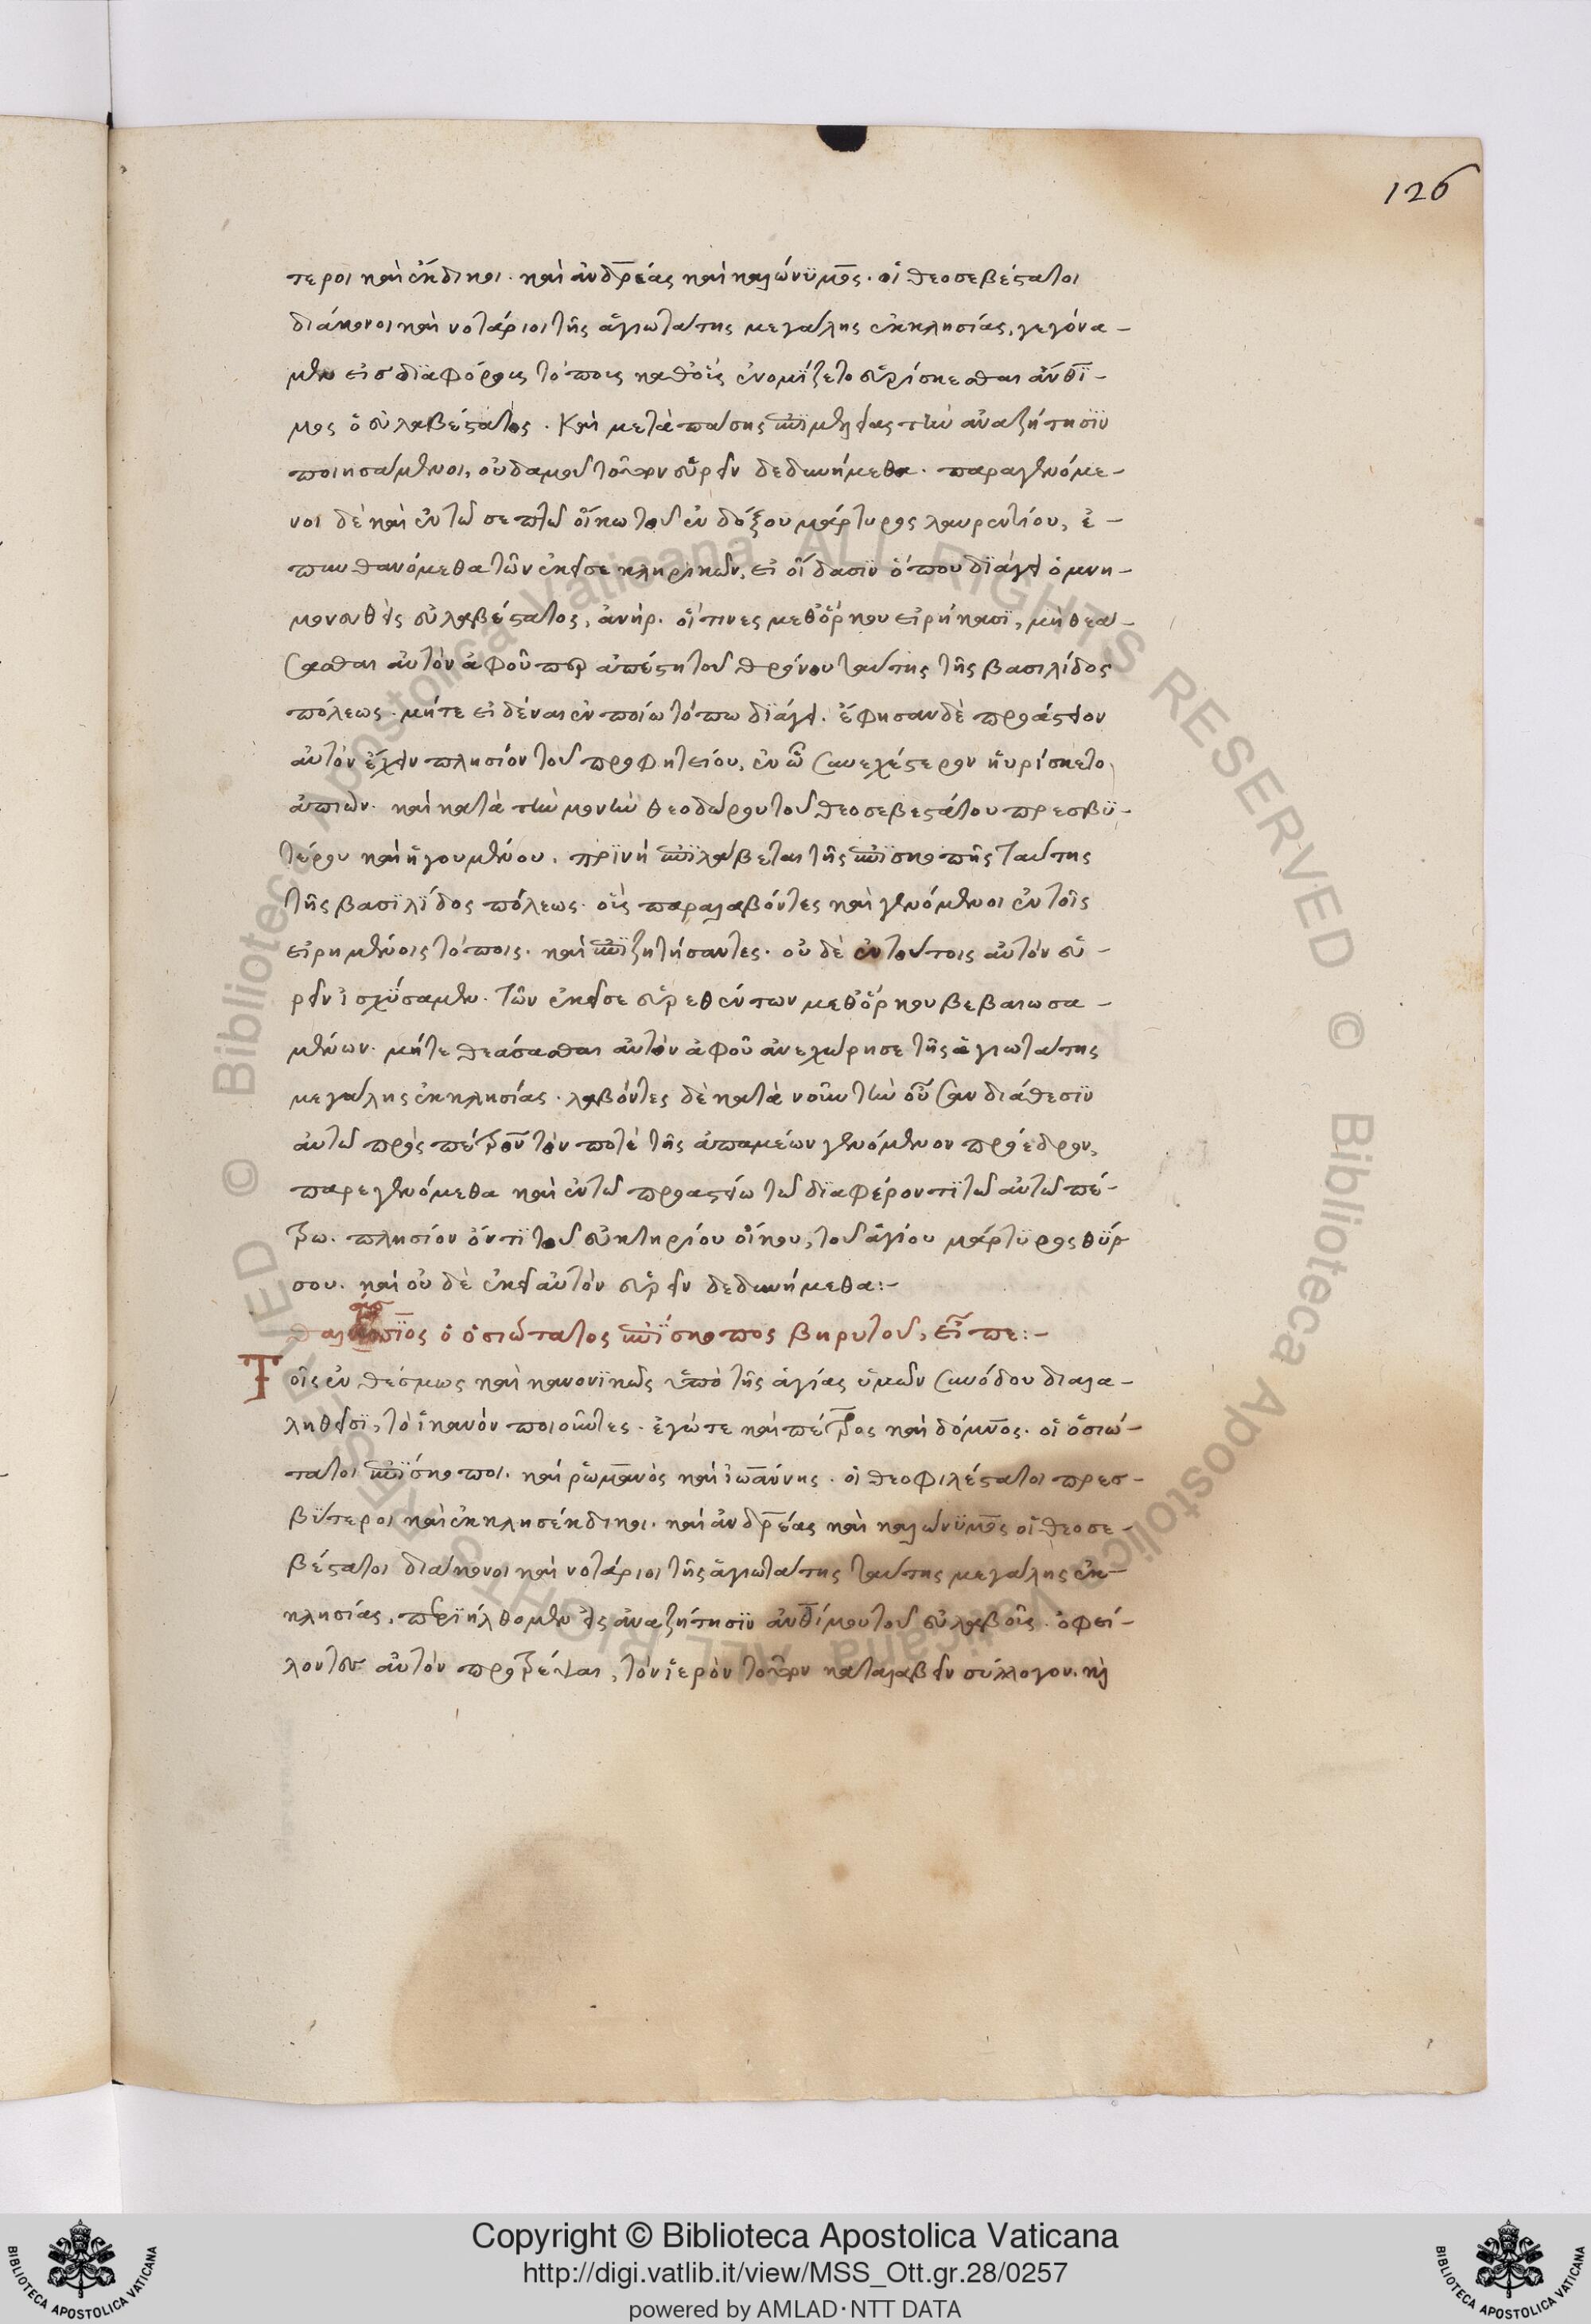 126
τεροι καὶ ἔκδικοι. καὶ ἀνδρέας καὶ καλώνϋμος. οἱ θεοσεβέστατοι
διάκονοι καὶ νοτάριοι τῆς ἁγιωτάτης μεγάλης ἐκκλησίας, γεγόνα-
μεν εἰσ διαφόρους τόπους καθ' οἷς ἐνομίζετο εὑρίσκεσθαι ἄνθϊ-
μος ὁ εὐλαβέστατος. Καὶ μετὰ πάσης ἐπϊμελείας τὴν ἀναζήτησϊν
ποιησάμενοι, οὐδαμοῦ τοῦτον εὑρεῖν δεδυνήμεθα. παραγενόμε-
νοι δὲ καὶ ἐν τῶ σεπτῶ οἴκω τοῦ ἐνδόξου μάρτυρος λαυρεντίου, ἐ-
πυνθανόμεθα τῶν ἐκεῖσε κληρικῶν, εἰ οἴδασϊν ὅπου διάγει ὁ μνη-
μονευθεὶς εὐλαβέστατος, ἀνήρ. οἵτινες μεθ' ὅρκου εἰρήκασϊ, μὴ θεά-
σασθαι αὐτὸν ἀφοῦ περ ἀπέστη τοῦ θρόνου ταύτης τῆς βασιλίδος
πόλεως. μήτε εἰδέναι ἐν ποίω τόπω διάγει. ἔφησαν δὲ προάστειον
αὐτὸν ἔχειν πλησίον τοῦ προφητείου, ἐν ὧ συνεχέστερον ηὑρίσκετο,
ἀπιὼν. καὶ κατὰ τὴν μονὴν θεοδώρου τοῦ θεοσεβεστάτου πρεσβϋ-
τέρου καὶ ἡγουμένου. πρϊνὴ ἐπϊλάβεται τῆς ἐπϊσκοπῆς ταύτης
τῆς βασϊλίδος πόλεως. οἷς παραλαβόντες καὶ γενόμενοι ἐν τοῖς
εἰρημένοις τόποις. καὶ ἐπϊζητήσαντες. οὐδὲ ἐν τούτοις αὐτὸν εὑ-
ρεῖν ἰσχϋσαμεν. τῶν ἐκεῖσε εὑρεθέντων μεθ' ὅρκου βεβαιωσα-
μένων. μήτε θεάσασθαι αὐτὸν ἀφοῦ ἀνεχώρησε τῆς ἁγιωτάτης
μεγάλης ἐκκλησίας. λαβόντες δὲ κατὰ νοῦν τὴν οὖσαν διάθεσϊν
αὐτῶ πρὸς πέτρον τὸν ποτὲ τῆς ἀπαμέων γενόμενον πρόεδρον,
παρεγενόμεθα καὶ ἐν τῶ προαστείω τῶ διαφέροντϊ τῶ αὐτῶ πέ-
τρω. πλησίον ὄντϊ τοῦ εὐκτηρίου οἴκου, τοῦ ἁγίου μάρτϋρος θϋρ
σου. καὶ οὐδὲ ἐκεῖ αὐτὸν εὑρεῖν δεδυνήμεθα:-
ὁ ὁσιώτατος ἐπϊσκοπος βηρυτοῦ, εἶπε:-
Τοῖς ἐνθέσμως καὶ κανονϊκῶς ὑπὸ τῆς ἁγίας ὑμῶν συνόδου διαλα-
ληθεῖσϊ, τὸ ἱκανὸν ποιοῦντες. ἐγώ τε καὶ πέτρος καὶ δόμνος. οἱ ὁσιώ-
τατοι ἐπϊσκοποι. καὶ ῥωμανὸς καὶ ἰωάννης. οἱ θεοφιλέστατοι πρεσ-
βϋτεροι καὶ ἐκκλησέκδικοι. καὶ ἀνδρέας καὶ καλώνϋμος οἱ θεοσε-
βέστατοι διάκονοι καὶ νοτάριοι τῆς ἁγιωτάτης ταύτης μεγάλης ἐκ-
κλησίας, περϊήλθομεν εἰς ἀναζήτησϊν ἀνθίμου τοῦ εὐλαβοῦς. ὀφεί-
λοντος αὐτὸν προτρέψαι, τὸν ἱερὸν τοῦτον καταλαβεῖν σύλλογον. κὶ
Copyright © Biblioteca Apostolica Vaticana
http://digi.vatlib.it/view/MSS_Ott.gr.28/0257
powered by AMLAD·NTT DATA